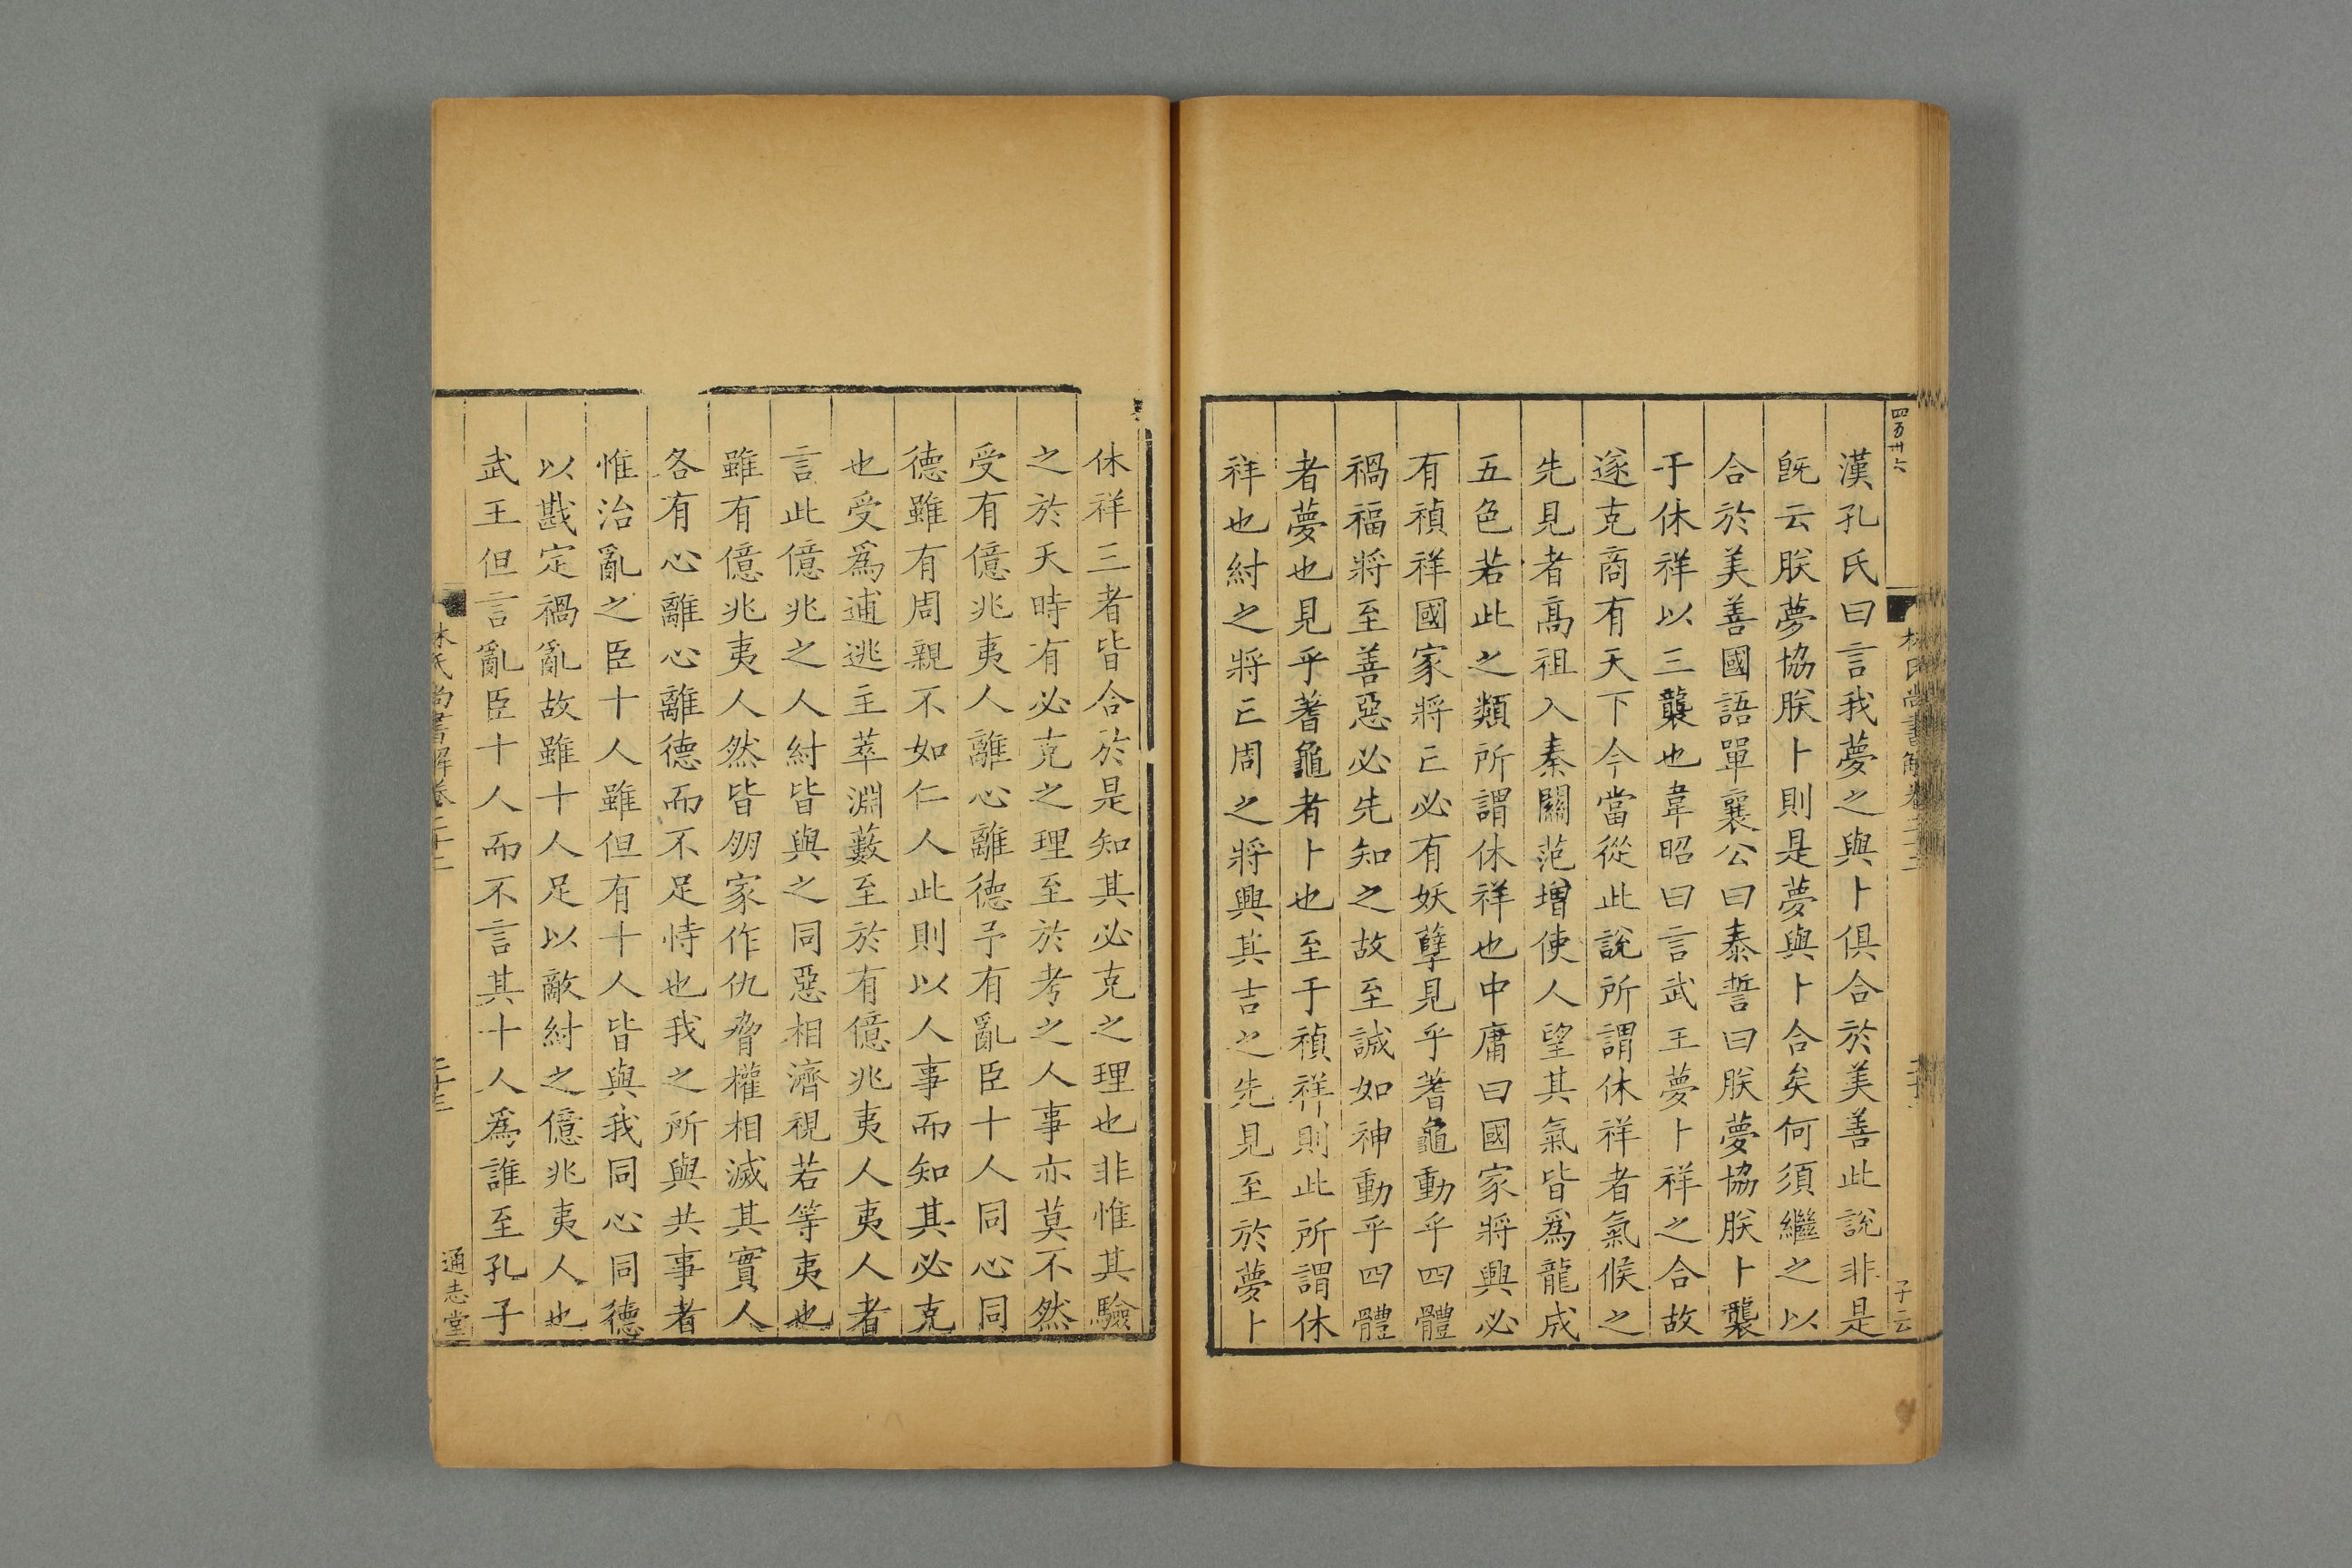 漢孔氏曰言我夢之與卜俱合於美善此說非是
旣云朕夢協朕卜則是夢與卜合矣何須繼之以
合於美善國語單襄公曰泰誓曰朕夢協朕卜襲
于休祥以三襲也韋昭曰言武王夢卜祥之合故
遂克商有天下今當從此說所謂休祥者氣候之
先見者高祖入秦關范增使人望其氣皆爲龍成
五色若此之類所謂休祥也中庸曰國家將興必
有禎祥國家將亡必有妖孽見乎蓍龜動乎四體
禍福將至善惡必先知之故至誠如神動乎四體
者夢也見乎蓍龜者卜也至于禎祥則此所謂休
祥也紂之將亡周之將興其吉之先見至於夢卜
休祥三者皆合於是知其必克之理也非惟其驗
之於天時有必克之理至於考之人事亦莫不然
受有億兆夷人離心離德予有亂臣十人同心同
德雖有周親不如仁人此則以人事而知其必克
也受爲逋逃主萃淵藪至於有億兆夷人夷人者
言此億兆之人紂皆與之同惡相濟視若等夷也
雖有億兆夷人然皆朋家作仇脅權相滅其實人
各有心離心離德而不足恃也我之所與共事者
惟治亂之臣十人雖但有十人皆與我同心同德
以戡定禍亂故雖十人足以敵紂之億兆夷人也
武王但言亂臣十人而不言其十人爲誰至孔子
林氏尚書解卷二十二
通志堂